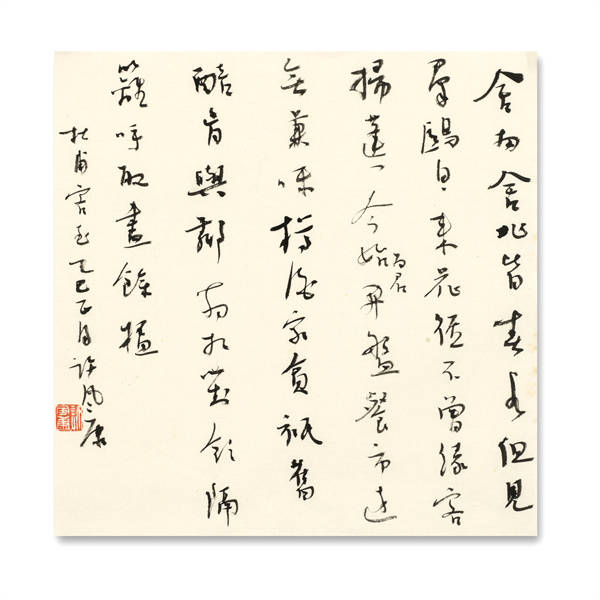 舍南舍北皆春水但見
羣鷗日日來花徑不曾緣客
掃蓬門今始為君開盤餐市遠
無兼味樽酒家貧祇舊
醅肯與鄰翁相對飲隔
籬呼取盡餘杯
杜甫客至乙巳正月許風康